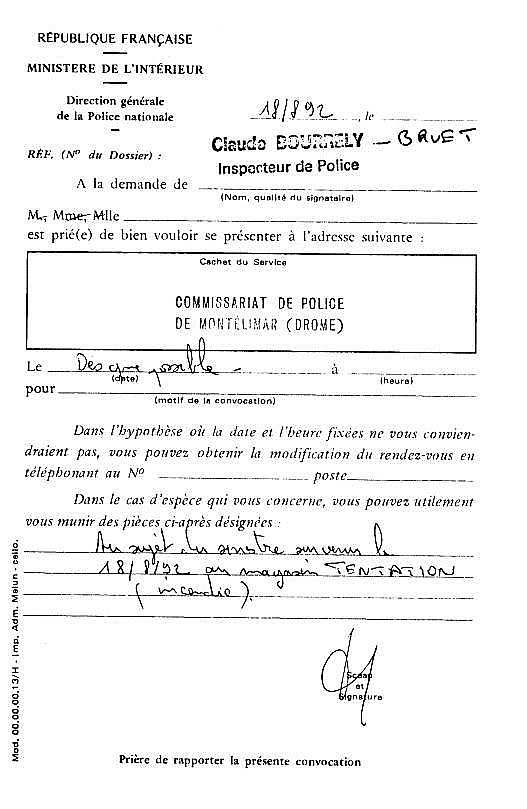 RÉPUBLIQUE FRANÇAISE
MINISTERE DE L'INTÉRIEUR
Direction générale
de la Police nationale
18/8 92, le
Claude BOURRELY - BRUET
Inspecteur de Police
RÉF. (Nº du Dossier) :
A la demande de
(Nom, qualité du signataire)
M., Mme, Mlle
est prié(e) de bien vouloir se présenter à l'adresse suivante :
Cachet du Service
COMMISSARIAT DE POLICE
DE MONTÉLIMAR (DROME)
Le Des que possible - à
(date) (heure)
pour
(motif de la convocation)
Dans l'hypothèse où la date et l'heure fixées ne vous convien-
draient pas, vous pouvez obtenir la modification du rendez-vous en
téléphonant au Nº poste
Dans le cas d'espèce qui vous concerne, vous pouvez utilement
vous munir des pièces ci-après désignées :
Au sujet du sinistre survenu le
18/8/92 au magasin TENTATION
(incendie).
Sceau
et
Signature
Prière de rapporter la présente convocation
Mod. 00.00.00.13/H - Imp. Adm. Melun - cello.